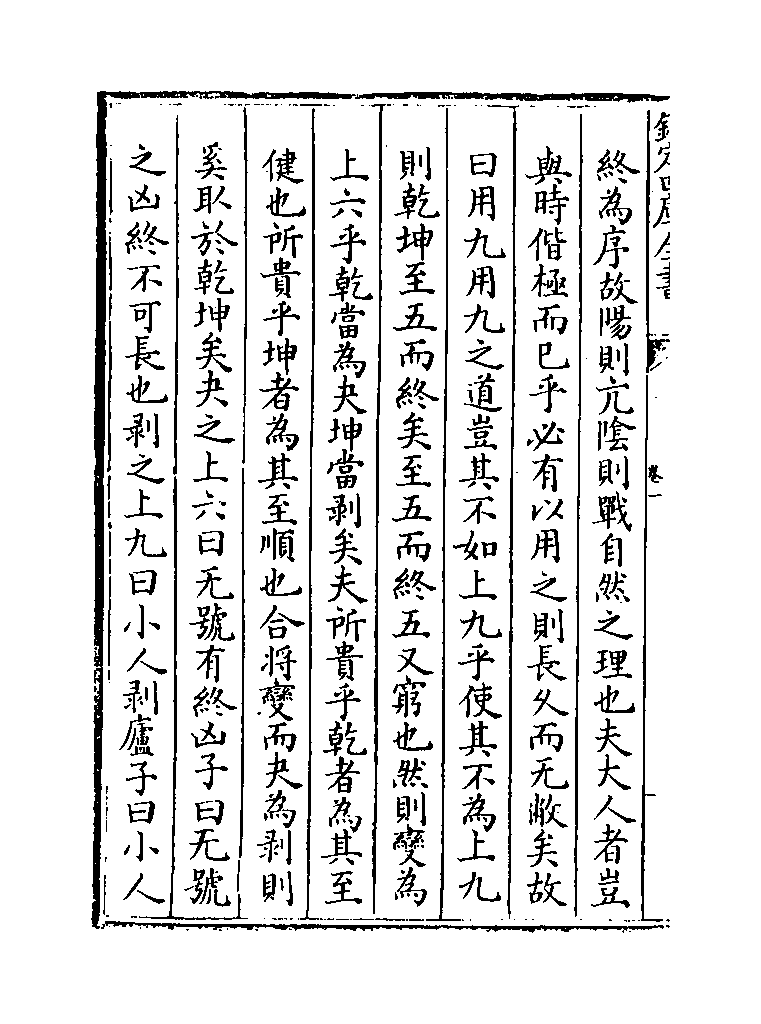 欽定四庫全書
卷一
終為序故陽則亢陰則戰自然之理也夫大人者豈
與時偕極而已乎必有以用之則長久而无敝矣故
曰用九用九之道豈其不如上九乎使其不為上九
則乾坤至五而終矣至五而終五又窮也然則變為
上六乎乾當為夬坤當剥矣夫所貴乎乾者為其至
健也所貴乎坤者為其至順也合將變而夬為剥則
奚取於乾坤矣夬之上六曰无號有終凶子曰无號
之凶終不可長也剥之上九曰小人剥廬子曰小人